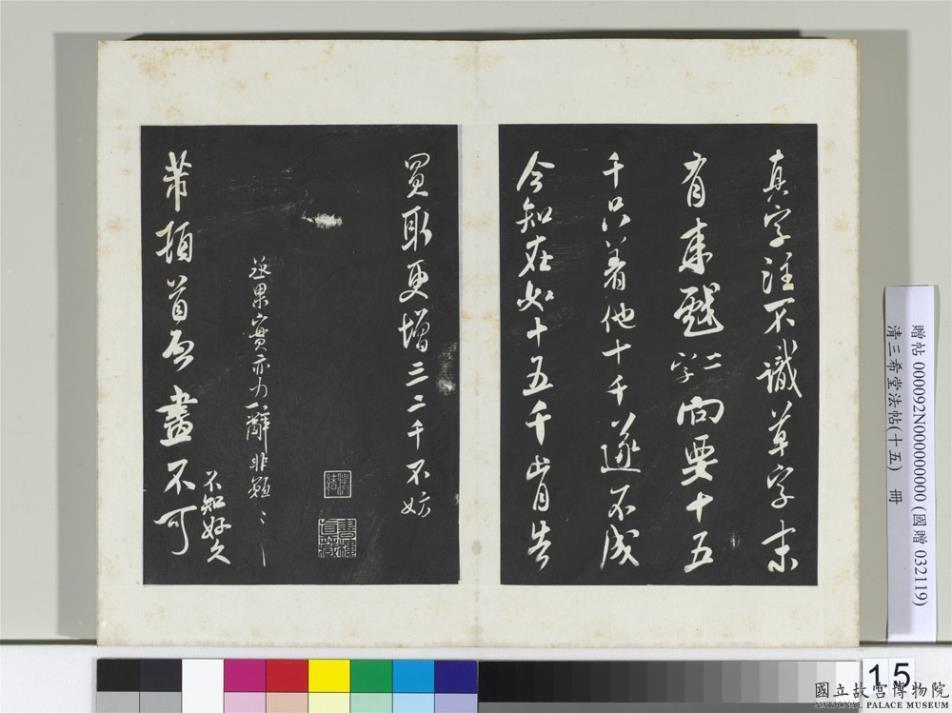 真字注不識草字末
有来戲二字向要十五
千只着他十千遂不成
今知在如十五千肯告
買取更增三二千不妨
丞果實亦力辭非願〻
不知好久
芾頓首啟畫不可
贈帖 000092N000000000 (國贈 032119)
清三希堂法帖(十五) 冊
15
國立故宮博物院
NATIONAL PALACE MUSEUM